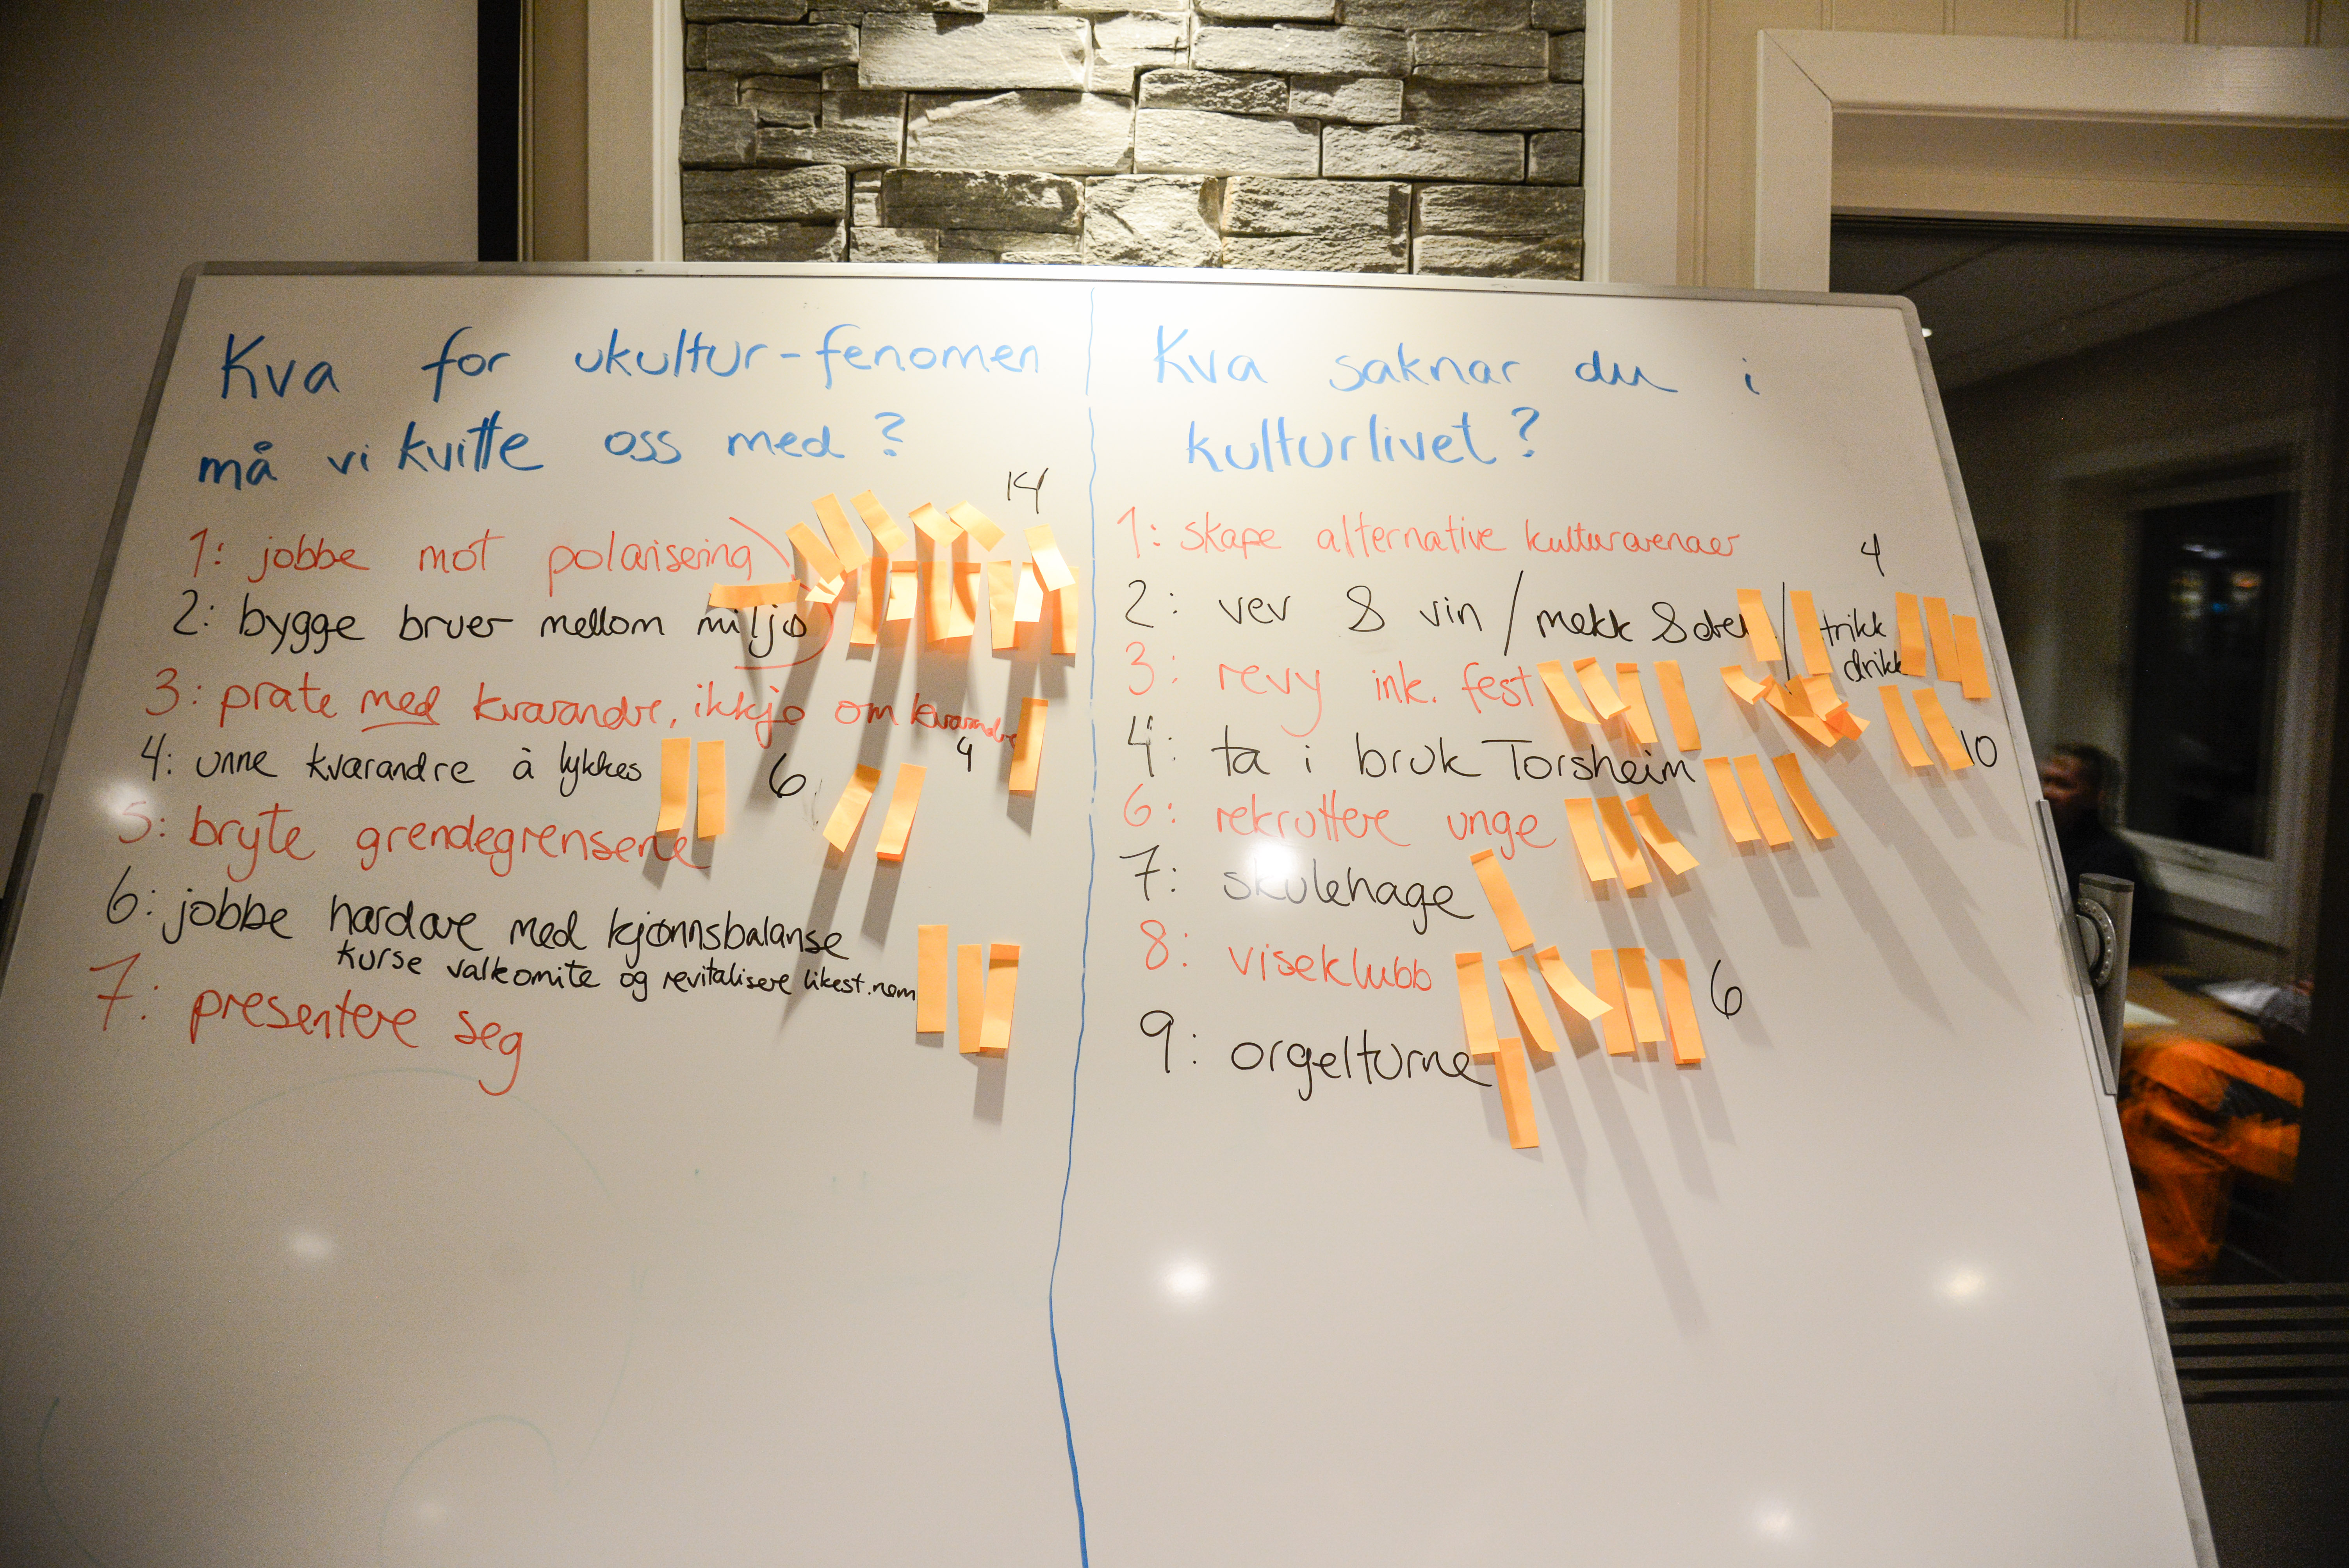 Kva for ukultur-fenomen
må vi kvitte oss med?
14
1: jobbe mot polarisering
2: bygge bruer mellom miljø
3: prate med kvarandre, ikkje om kvarandre
4: unne kvarandre å lykkes
6
4
5: bryte grendegrensene
6: jobbe hardare med kjønnsbalanse
kurse valkomite og revitalisere likest.nem
7: presentere seg
Kva saknar du i
kulturlivet?
1: skape alternative kulturarenaer
4
2: vev & vin / mekk & / trikk
drikk
3: revy ink. fest
4: ta i bruk Torsheim
10
6: rekruttere unge
7: skulehage
8: viseklubb
6
9: orgelturne